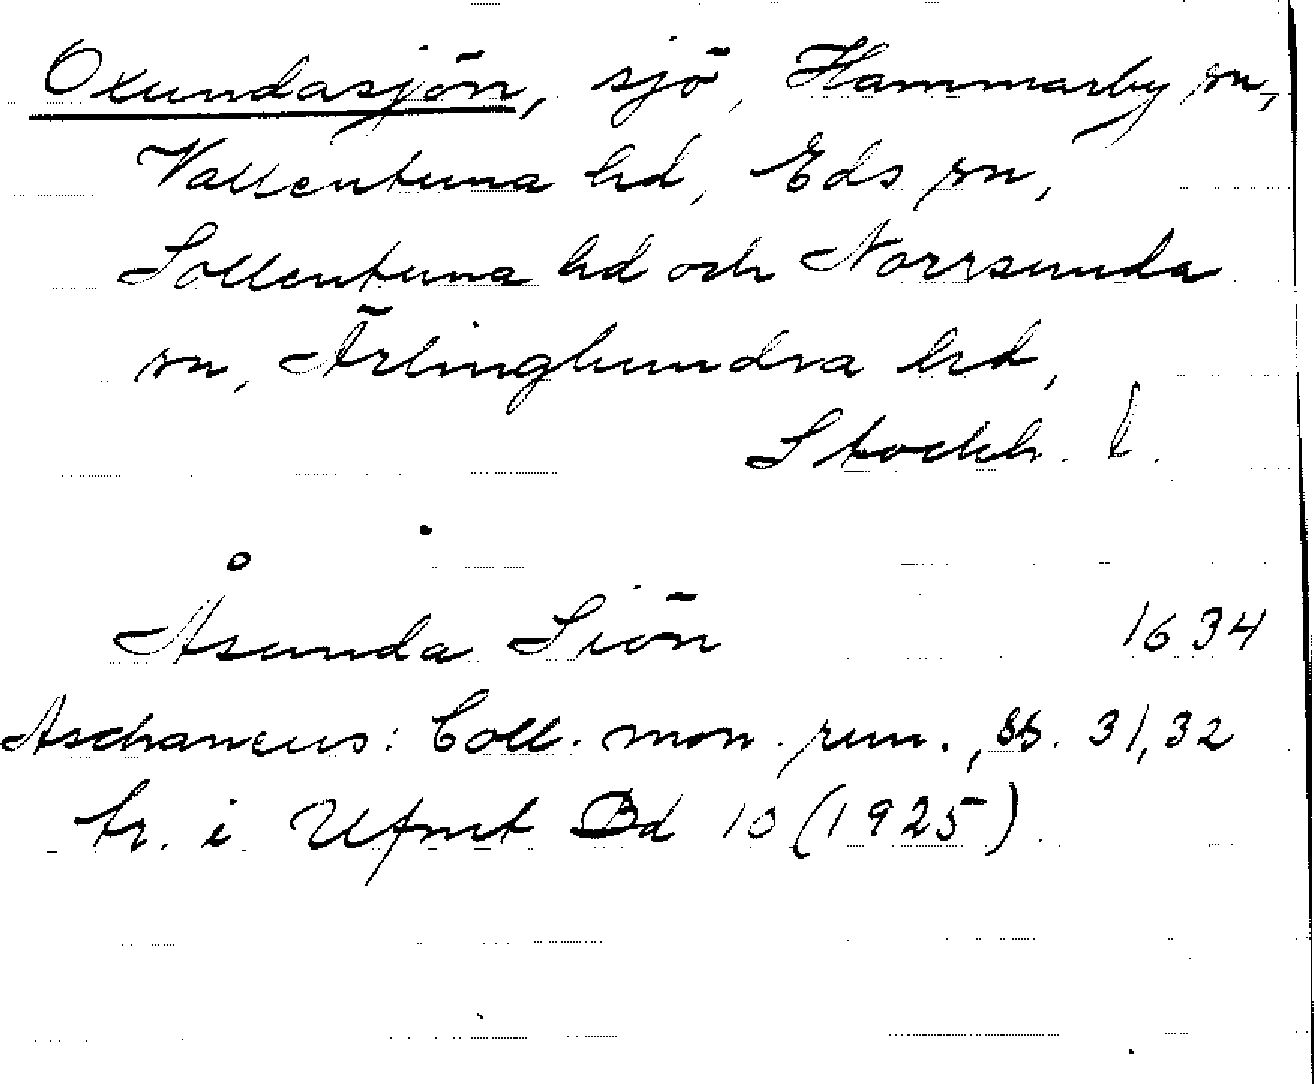 Oxundasjön, sjö, Hammarby sn,
Vallentuna hd, Eds sn,
Sollentuna hd och Norrsunda
sn, Ärlinghundra hd,
Stockh. l.
Åsunda Siön 1634
Aschaneus: Coll. mon. run., ss. 31, 32
tr. i Ufmt Bd 10 (1925).